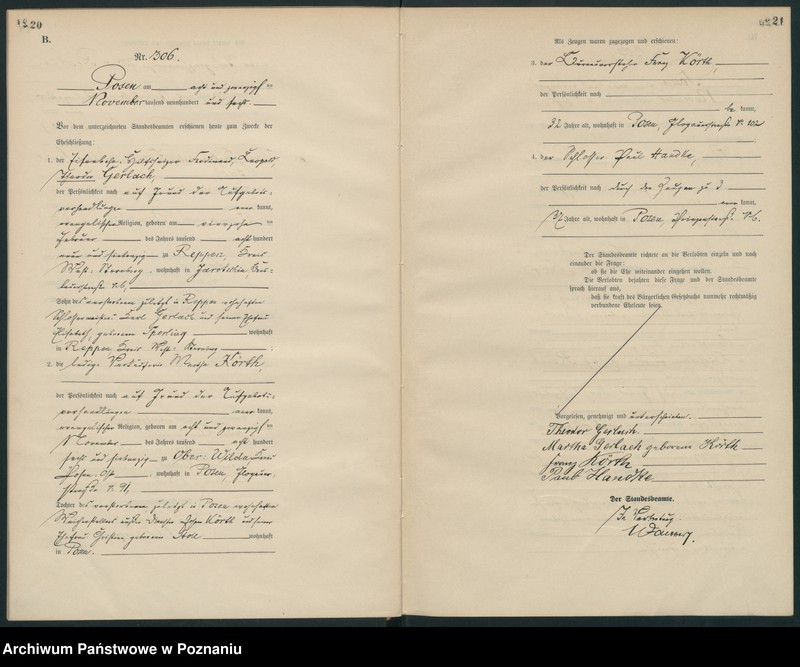 20
B.
Nr. 306.
Posen am acht und zwanzigsten
November tausend neunhundert und sechs
Vor dem unterzeichneten Standesbeamten erschienen heute zum Zwecke der
Eheschließung:
1. der Ferdinand, Leopold,
Theodor Gerlach,
der Persönlichkeit nach auf Grund der Aufgebots-
verhandlungen kannt,
evangelischer Religion, geboren am vierzehnten
Februar des Jahres tausend acht hundert
neun und siebenzig zu Reppen, Kreis
West-Sternberg, wohnhaft in Jarotschin,
Sohn des verstorbenen zuletzt in Reppen wohnhaften
Schlossermeisters Carl Gerlach und seiner Ehefrau
Elisabeth, geborenen Sperling wohnhaft
in Reppen Kreis West-Sternberg
2. die ledige Verkäuferin Martha Körth,
der Persönlichkeit nach auf Grund der Aufgebots-
verhandlungen kannt,
evangelischer Religion, geboren am acht und zwanzigsten
November des Jahres tausend acht hundert
sechs und siebenzig zu Ober-Wilda Kreis
Posen-Ost, wohnhaft in Posen, Glogauer-
straße Nr. 91,
Tochter des verstorbenen zuletzt in Posen wohnhaften
Körth und seiner
Ehefrau Christine geborenen wohnhaft
in Posen.
21
Als Zeugen waren zugezogen und erschienen:
3. der Franz Körth,
der Persönlichkeit nach
be kannt,
32 Jahre alt, wohnhaft in Posen, Glogauerstraße Nr. 102
4. der Schlosser Paul Handke,
der Persönlichkeit nach durch den Zeugen zu 3
kannt,
37 Jahre alt, wohnhaft in Posen,
Der Standesbeamte richtete an die Verlobten einzeln und nach
einander die Frage:
ob sie die Ehe miteinander eingehen wollen.
Die Verlobten bejahten diese Frage und der Standesbeamte
sprach hierauf aus,
daß sie kraft des Bürgerlichen Gesetzbuchs nunmehr rechtmäßig
verbundene Eheleute seien.
Vorgelesen, genehmigt und unterschrieben.
Theodor Gerlach.
Martha Gerlach geborene Körth
Franz Körth
Paul Handke
Der Standesbeamte.
In Vertretung.
Archiwum Państwowe w Poznaniu